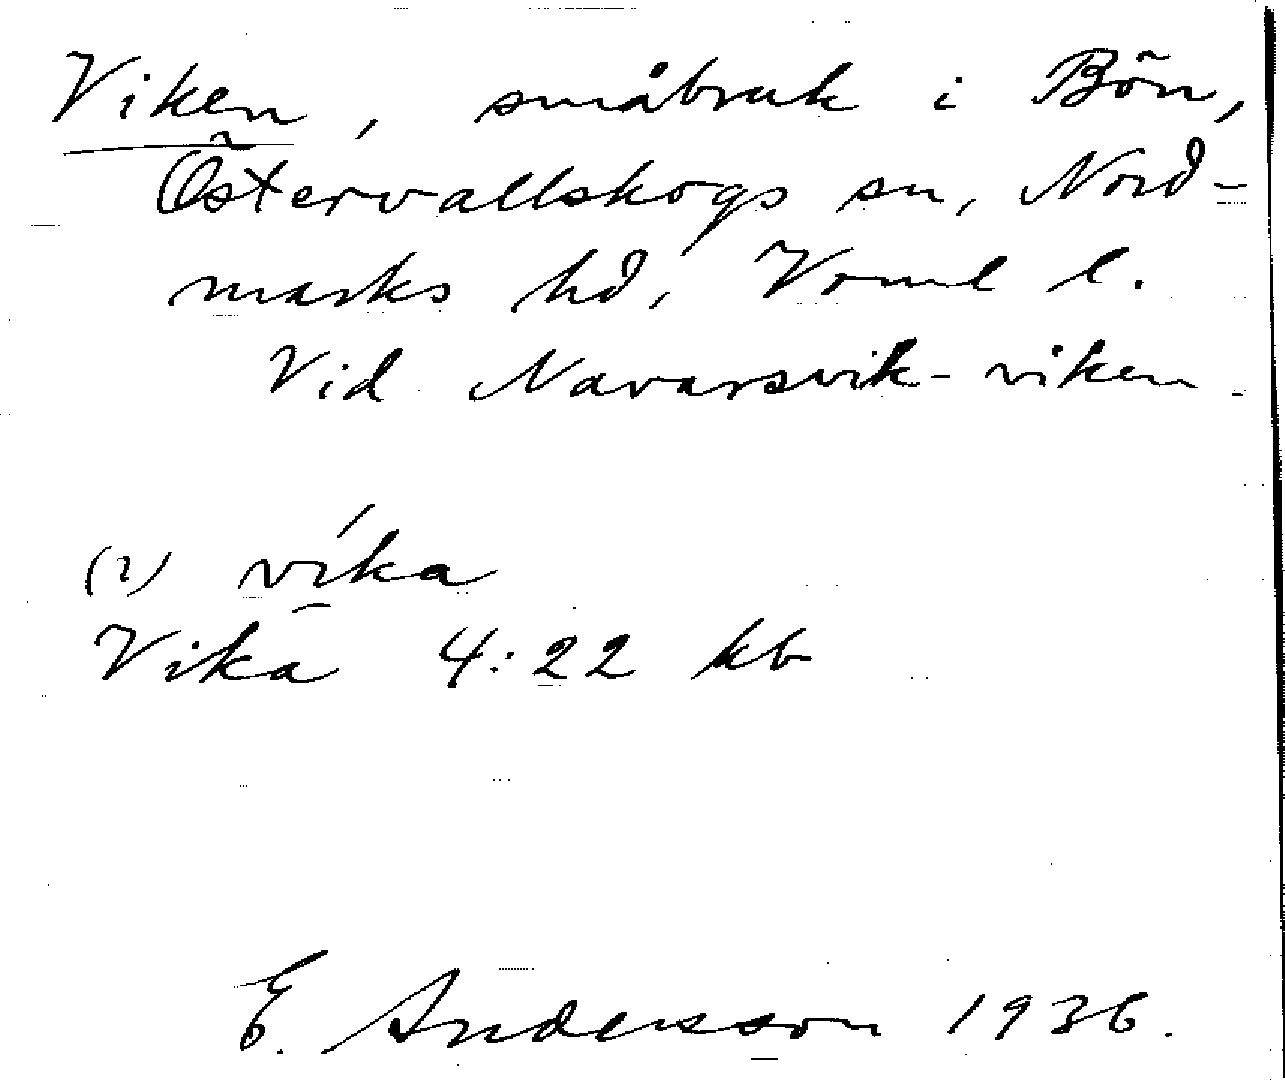 Viken, småbruk i Bön,
Östervallskogs sn, Nord-
marks hd, Vrml l.
Vid Navarsvik-viken
(2) víka
Vika 4:22 kb
E. Andersson 1936.